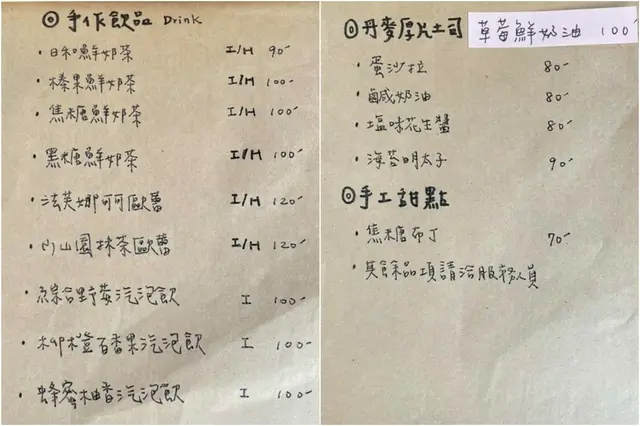 ◎手作飲品 Drink
・日和鮮奶茶 I/H 90-
・榛果鮮奶茶 I/H 100-
・焦糖鮮奶茶 I/H 100-
・黑糖鮮奶茶 I/H 100-
・法芙娜可可歐蕾 I/H 120-
・丸山園抹茶歐蕾 I/H 120-
・綜合野莓汽泡飲 I 100-
・柳橙百香果汽泡飲 I 100-
・蜂蜜柚香汽泡飲 I 100-
◎丹麥厚片土司
草莓鮮奶油 100-
・蛋沙拉 80-
・鹹奶油 80-
・塩味花生醬 80-
・海苔明太子 90-
◎手工甜點
・焦糖布丁 70-
・其餘品項請洽服務人員